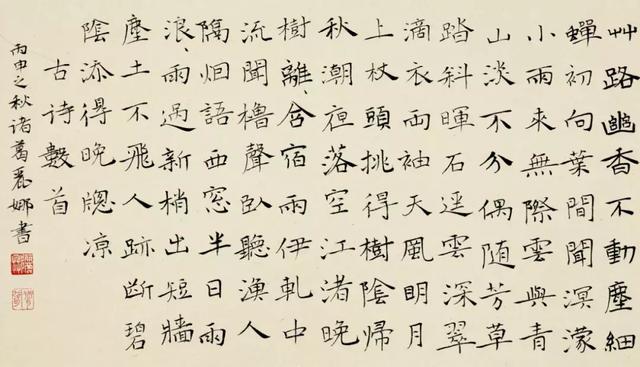 艸路幽香不動塵細
蟬初向葉間聞溟濛
小雨來無際雲與青
山淡不分偶随芳草
踏斜暉石逕雲深翠
滴衣兩袖天風明月
上杖頭挑得樹陰歸
秋潮夜落空江渚晚
樹離、含宿雨伊軋中
流聞櫓聲臥聽漁人
隔烟語西窓半日雨
浪、雨過新梢出短牆
塵土不飛人跡断碧
陰添得晚窓凉
古诗數首
丙申之秋诸葛丽娜書